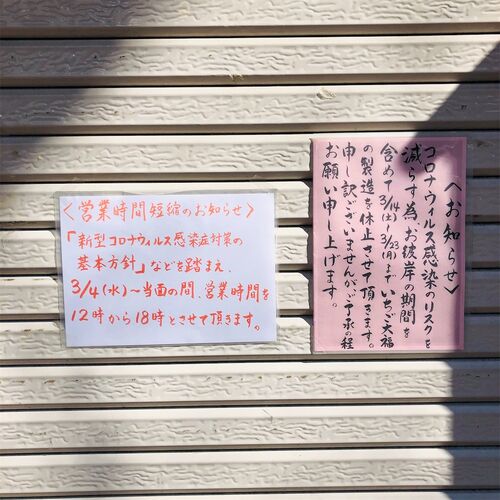 ＜営業時間短縮のお知らせ＞
「新型コロナウィルス感染症対策の
基本方針」などを踏まえ、
3/4(水)～当面の間、営業時間を
12時から18時とさせて頂きます。
＜お知らせ＞
コロナウィルス感染のリスクを
減らす為、お彼岸の期間を
含めて3/14(土)～3/23(月)まで いちご大福
の製造を休止させて頂きます。
申し訳ございませんがご了承の程
お願い申し上げます。